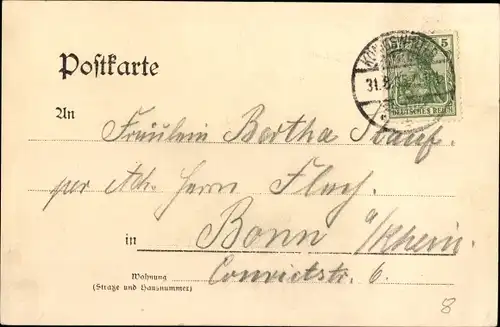 Postkarte
5
KÖNIGSWINTER
31.8.
DEUTSCHES REICH
An
Fräulein Bertha Stauf.
per Adr. Herrn Flach.
in Bonn a/Rhein.
Wohnung Convictstr. 6.
(Straße und Hausnummer)
8